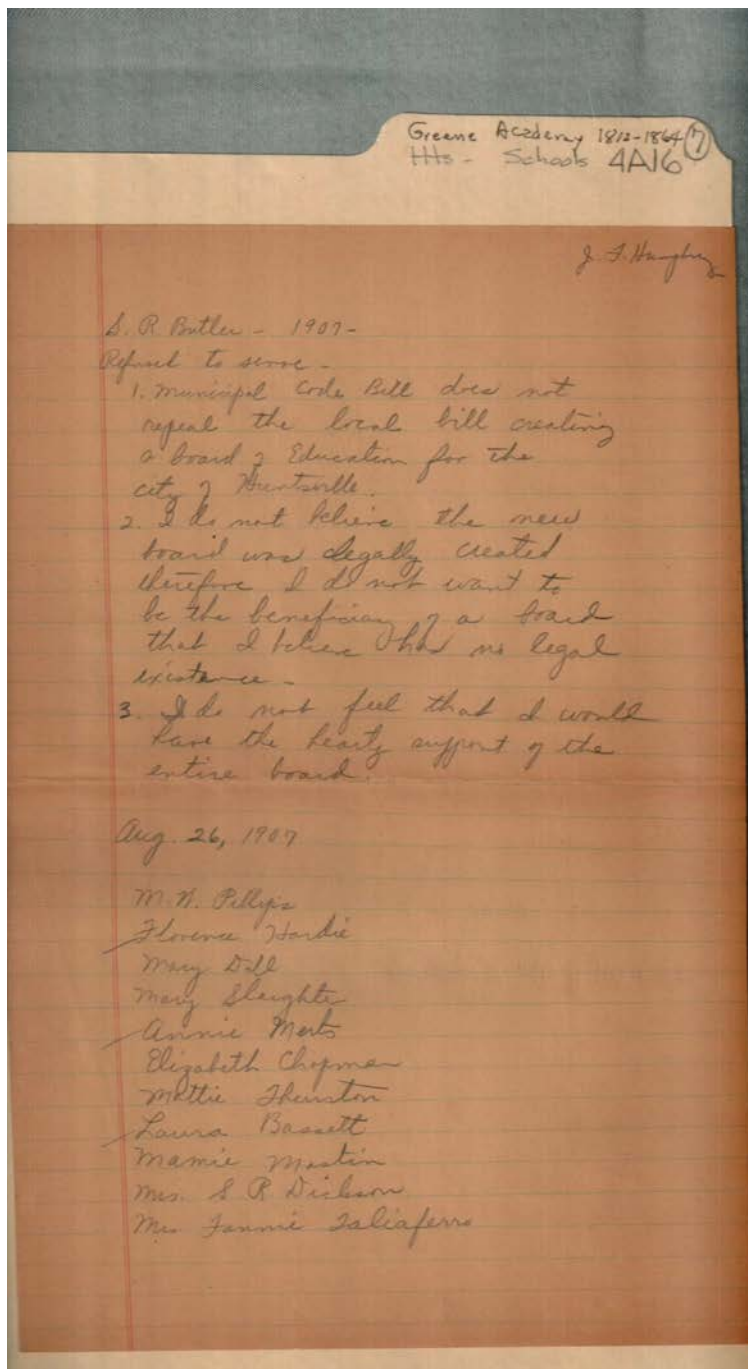 Greene Academy 1812-1864 7
HHs - Schools 4A16
J. F. Humphrey
S. R Butler - 1907-
Refused to serve -
1. Municipal Code Bill does not
repeal the local bill creating
a board of Education for the
city of Huntsville.
2. I do not believe the new
board was legally created
therefore I do not want to
be the beneficiary of a board
that I believe has no legal
existence -
3. I do not feel that I would
have the hearty support of the
entire board.
Aug. 26, 1907
M. W.
Florence Hardie
Mary Dill
Mary Slaughter
Annie Merts
Elizabeth Chapman
Mattie Thurston
Laura Bassett
Mamie Mastin
Mrs. S R Dickson
Mrs Fannie Taliaferro